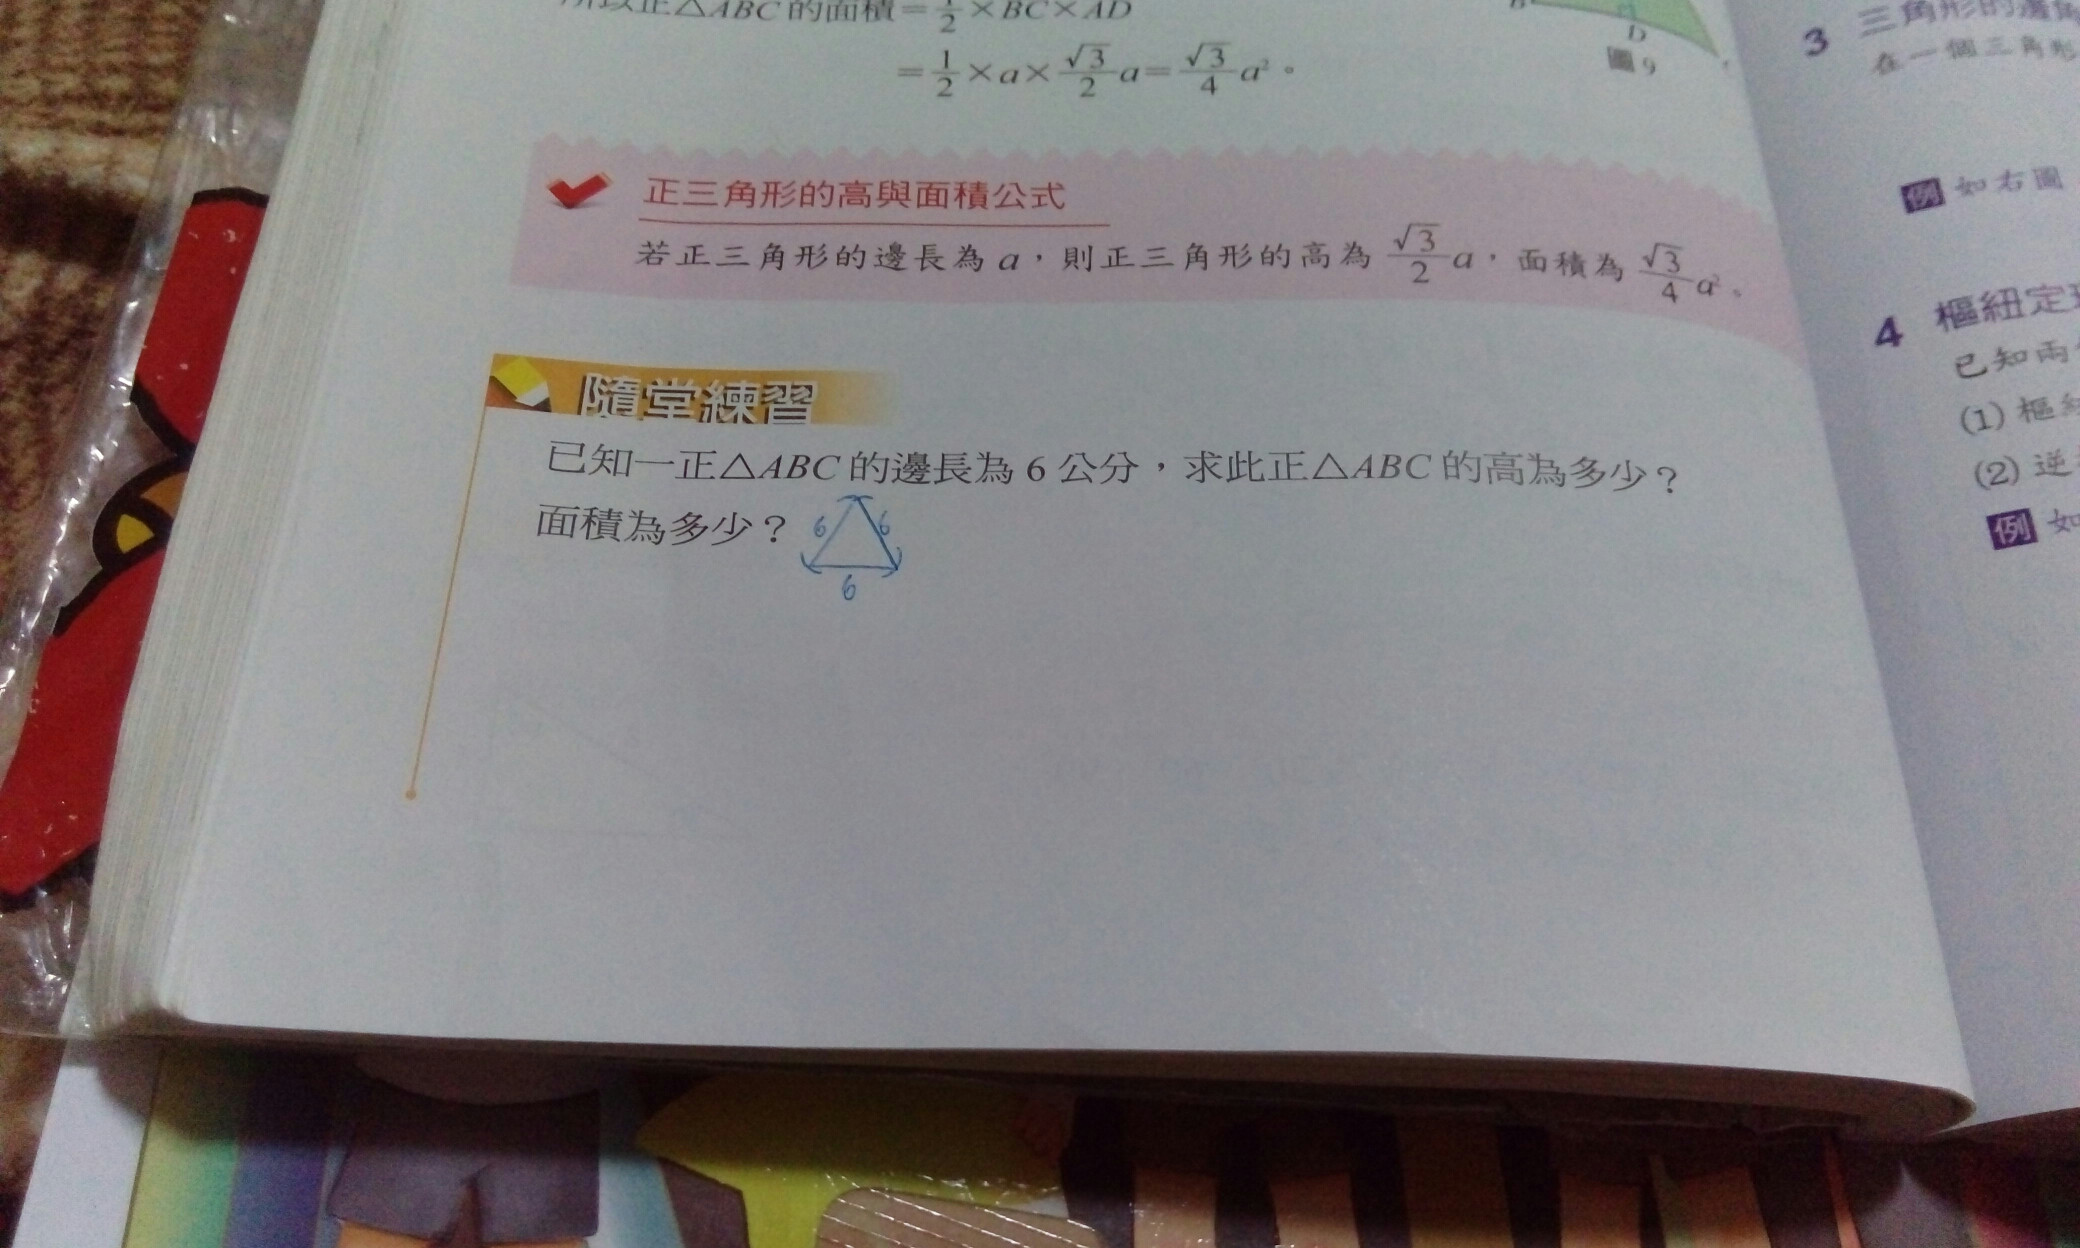 所以正△ABC的面積=1/2×BC×AD
=1/2×a×√3/2 a=√3/4 a²。
D
圖9
正三角形的高與面積公式
若正三角形的邊長為a,則正三角形的高為√3/2 a,面積為√3/4 a²。
隨堂練習
已知一正△ABC的邊長為6公分,求此正△ABC的高為多少?
面積為多少?
6 6
6
3 三角形的邊角
在一個三角形
例 如右圖
4 樞紐定理
已知兩
(1) 樞紐
(2) 逆
例 如